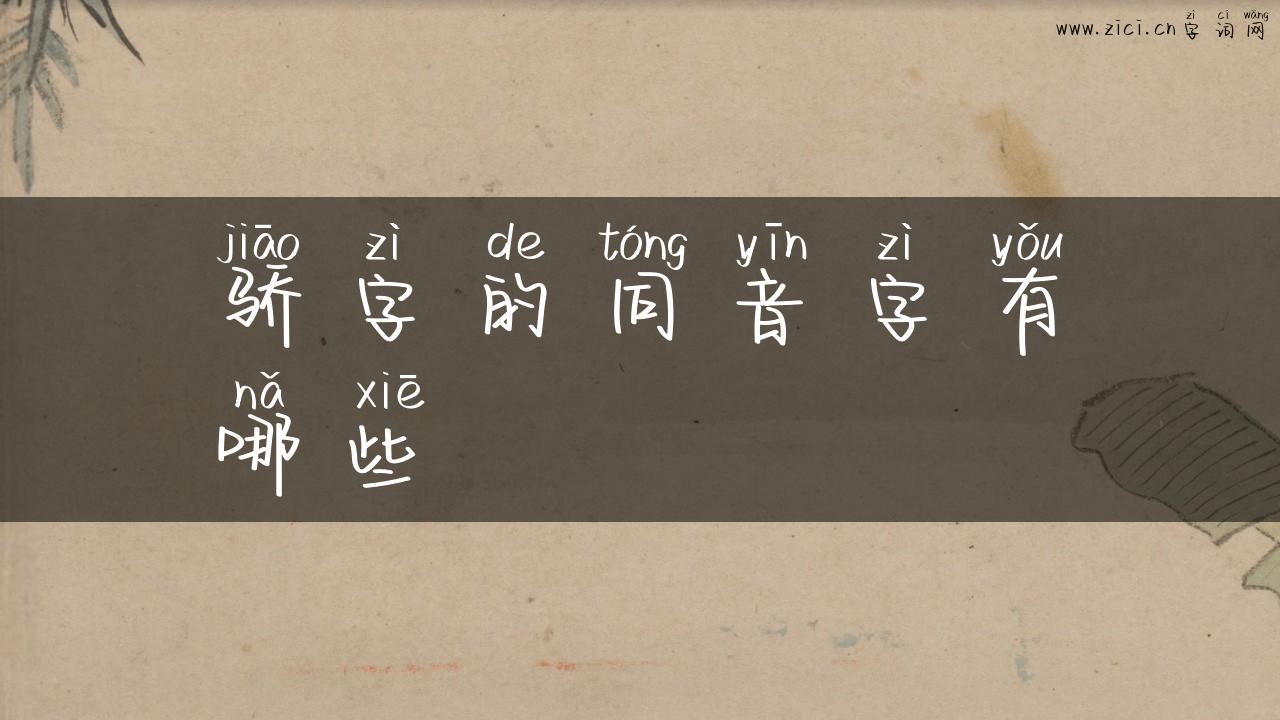 zì cí wǎng
www.zici.cn 字 词 网
jiāo zì de tóng yīn zì yǒu
骄 字 的 同 音 字 有
nǎ xiē
哪 些